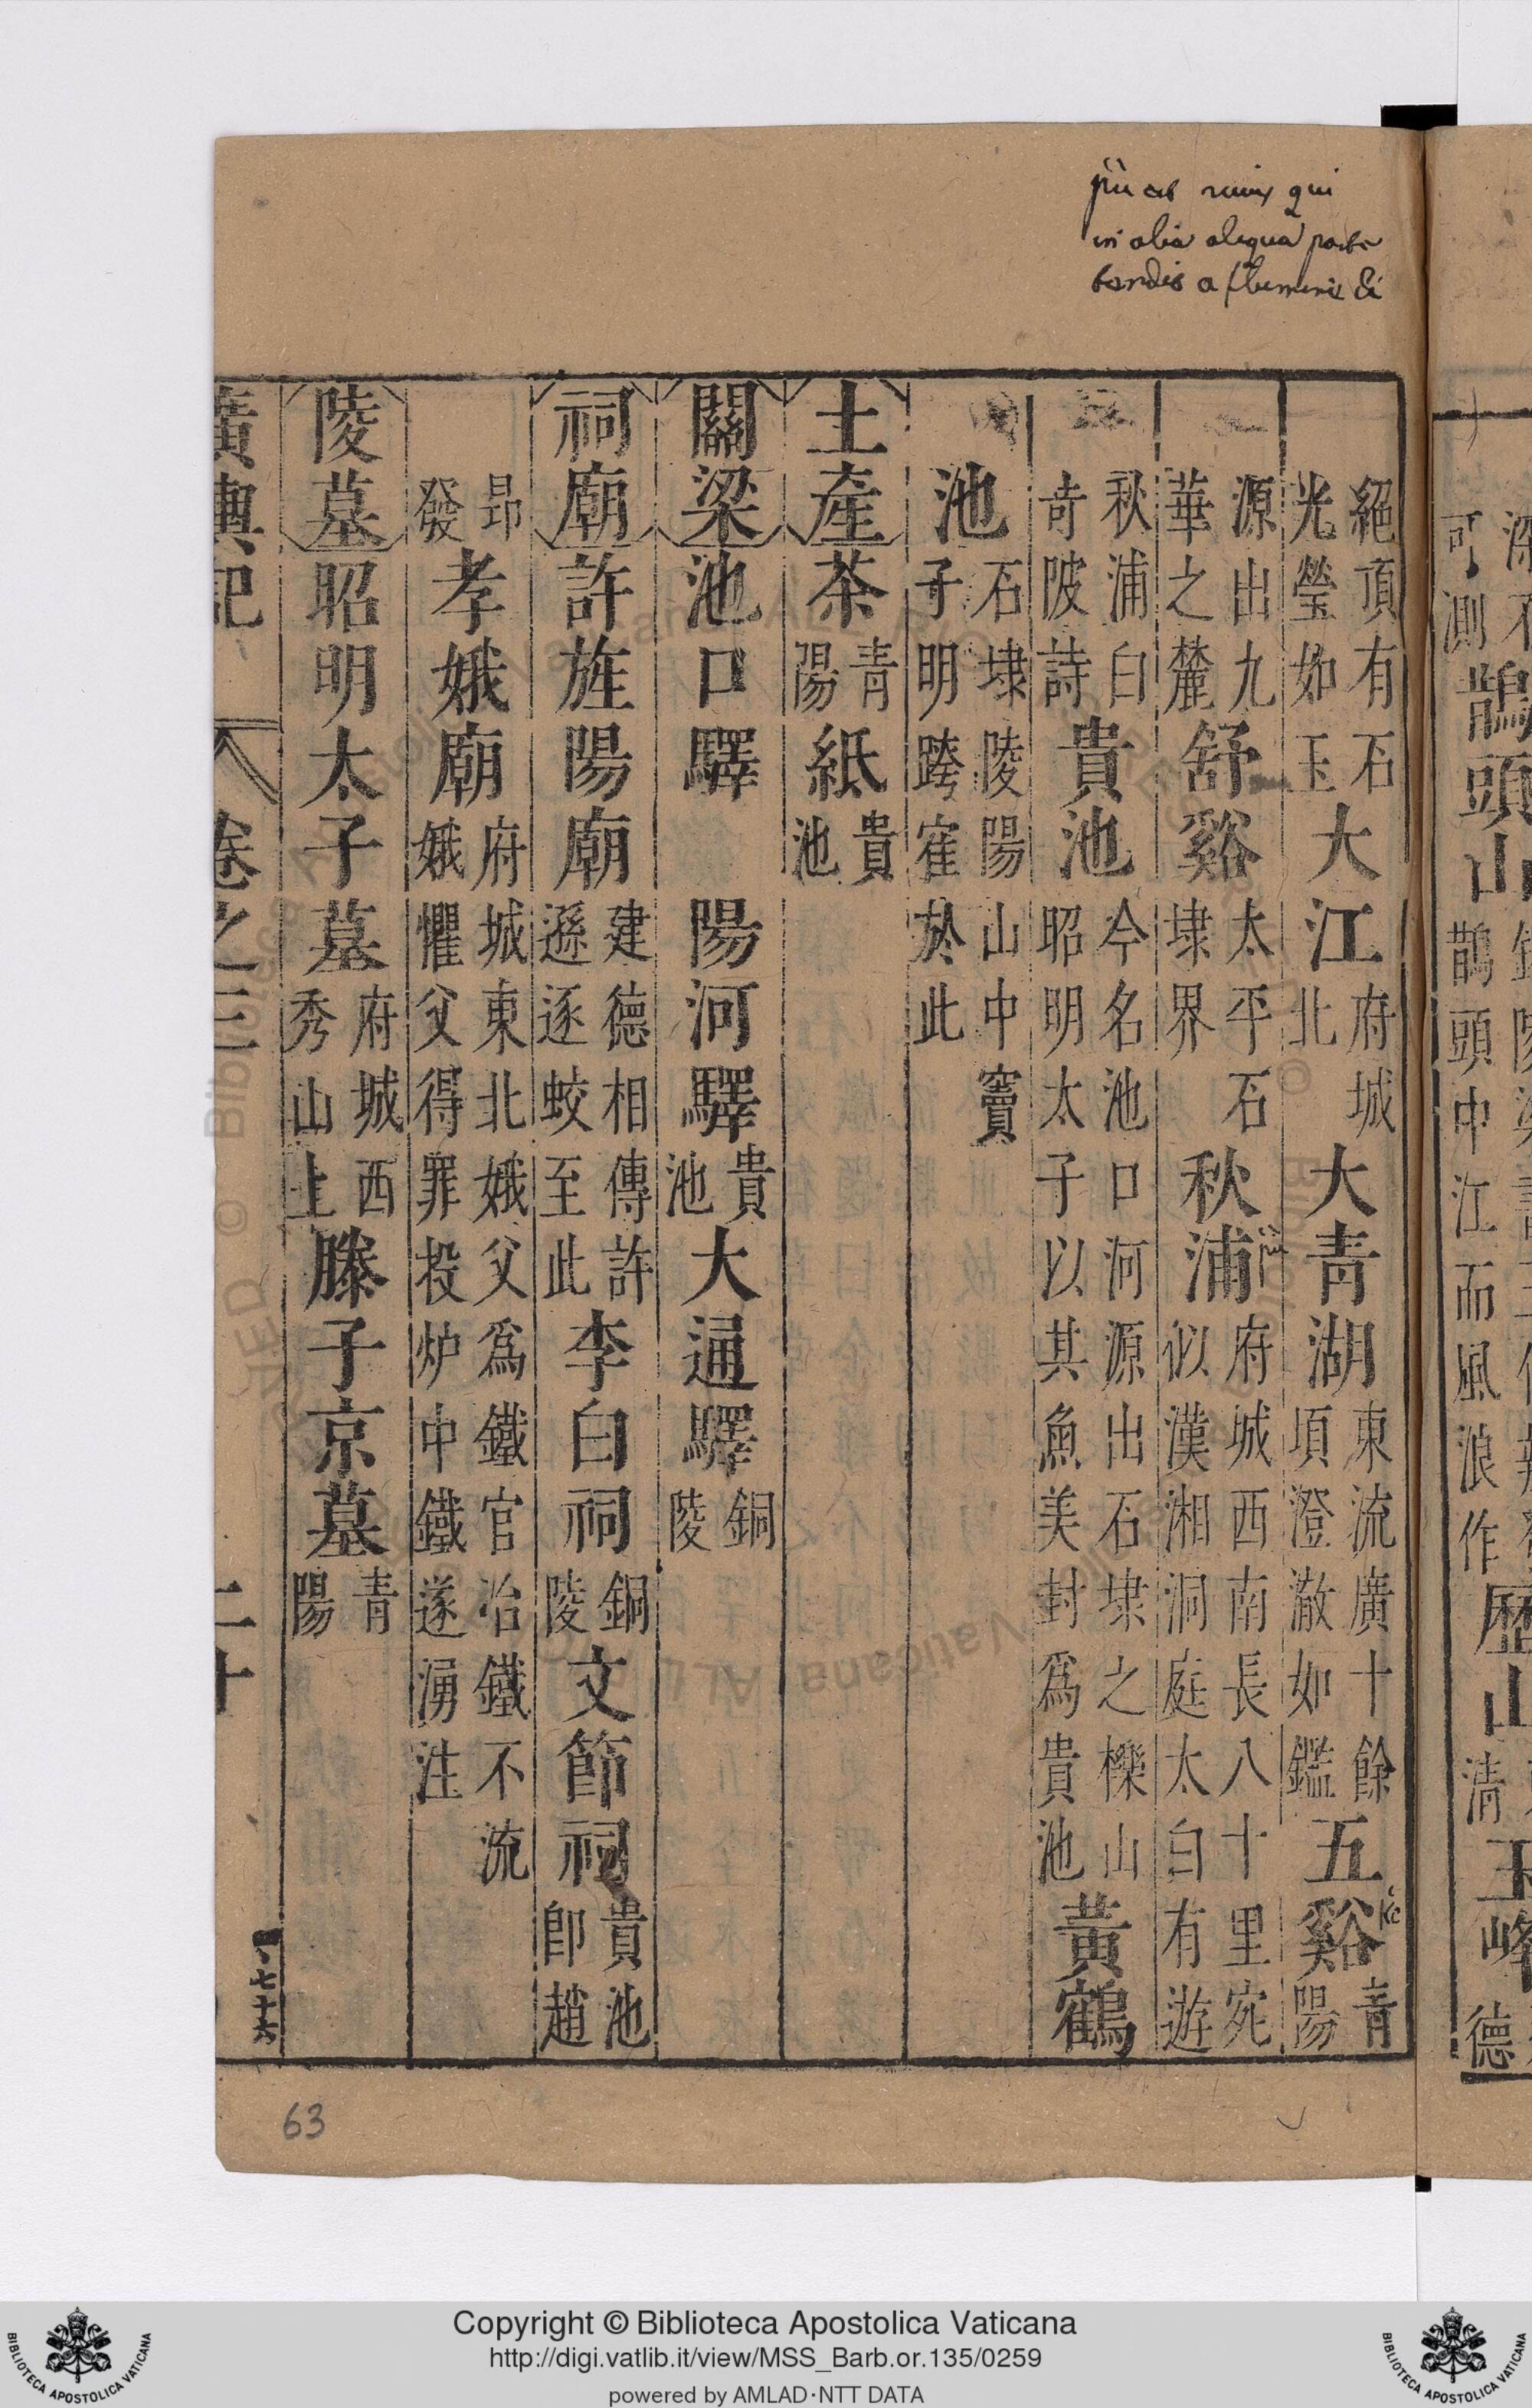 絕頂有石光瑩如玉大江府城北大青湖東流廣十餘頃澄澈如鑑五谿青陽
源出九華之麓舒谿太平石埭界秋浦府城西南長八十里宛似漢湘洞庭太白有遊
秋浦白竒陂詩貴池今名池口河源出石埭之櫟山昭明太子以其魚美封爲貴池黃鶴
池石埭陵陽山中竇子明跨寉於此
土產茶青陽紙貴池
關梁池口驛 陽河驛貴池大通驛銅陵
祠廟許旌陽廟建德相傳許遜逐蛟至此李白祠銅陵文節祠貴池卽趙
昂發孝娥廟府城東北娥父爲鐵官冶鐵不流娥懼父得罪投炉中鐵遂湧注
陵墓昭明太子墓府城西秀山上滕子京墓青陽
廣輿記 卷之三 二十
七十六
63
可測鵲頭山鵲頭中江而風浪作歷山清玉峰德
Copyright © Biblioteca Apostolica Vaticana
http://digi.vatlib.it/view/MSS_Barb.or.135/0259
powered by AMLAD·NTT DATA
BIBLIOTECA APOSTOLICA VATICANA
BIBLIOTECA APOSTOLICA VATICANA